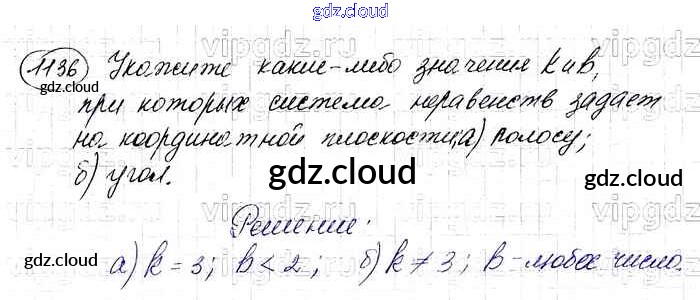 gdz.cloud
1136 Укажите какие-либо значения k и в,
при которых система неравенств задаёт
на координатной плоскости: а) полосу;
б) угол.
gdz.cloud
gdz.cloud
Решение:
gdz.cloud
а) k = 3; в < 2; б) k ≠ 3; в - любое число.